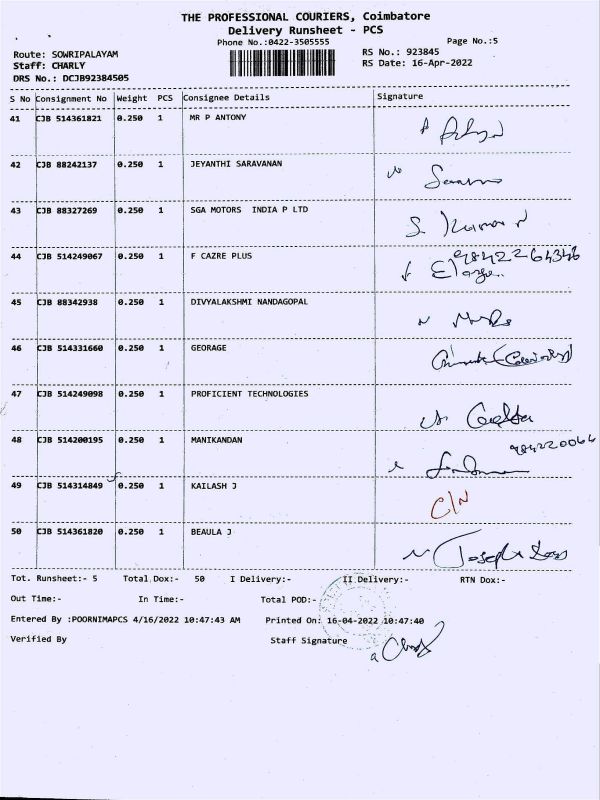 THE PROFESSIONAL COURIERS, Coimbatore
Delivery Runsheet - PCS
Phone No.:0422-3505555
Page No.:5
Route: SOWRIPALAYAM
RS No.: 923845
Staff: CHARLY
RS Date: 16-Apr-2022
DRS No.: DCJB92384505
S No Consignment No Weight PCS Consignee Details Signature
41 CJB 514361821 0.250 1 MR P ANTONY
42 CJB 88242137 0.250 1 JEYANTHI SARAVANAN
43 CJB 88327269 0.250 1 SGA MOTORS INDIA P LTD
S. Kumar
44 CJB 514249067 0.250 1 F CAZRE PLUS
9842264346
45 CJB 88342938 0.250 1 DIVYALAKSHMI NANDAGOPAL
46 CJB 514331660 0.250 1 GEORAGE
47 CJB 514249098 0.250 1 PROFICIENT TECHNOLOGIES
48 CJB 514200195 0.250 1 MANIKANDAN
49 CJB 514314849 0.250 1 KAILASH J
C/N
50 CJB 514361820 0.250 1 BEAULA J
Joseph
Tot. Runsheet:- 5 Total Dox:- 50 I Delivery:- II Delivery:- RTN Dox:-
Out Time:- In Time:- Total POD:-
Entered By :POORNIMAPCS 4/16/2022 10:47:43 AM Printed On: 16-04-2022 10:47:40
Verified By Staff Signature